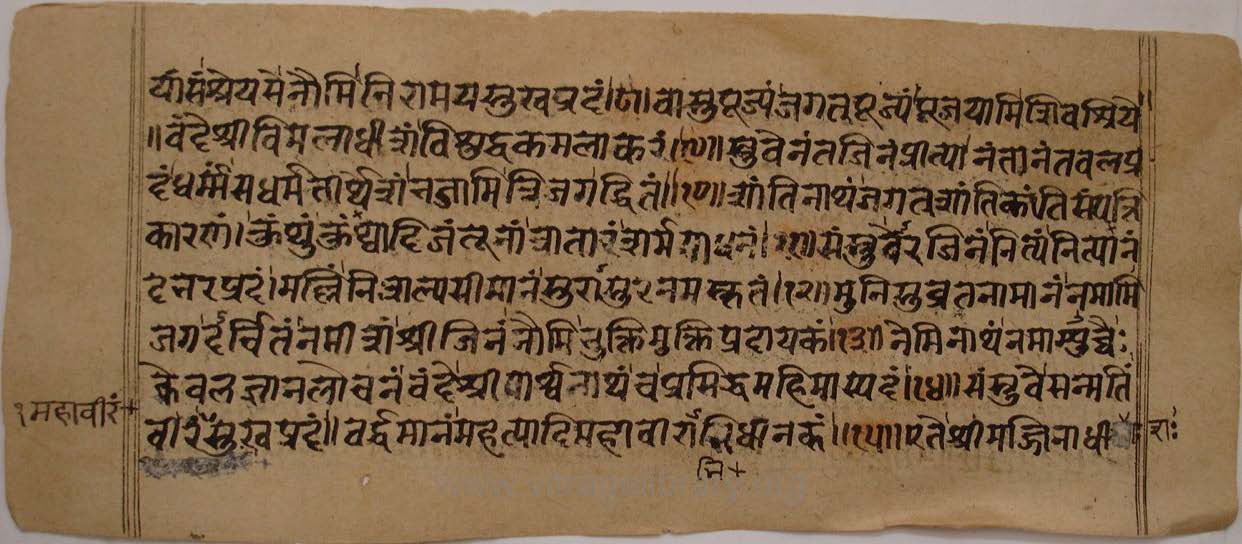 र्यासंश्रेयसेनौमिनिरामयसुखप्रदं।७।वासुपूज्यंजगत्पूज्यंपूजयामिशिवश्रिये
॥वंदेश्रीविमलाधीशंविशुद्धकमलाकरं।८॥स्तुवेनंतजिनंप्रीत्यानंतानंतबलप्र
दंधर्म्मंसधर्मतीर्थेशंनजामित्रिजगद्धितं॥९॥शांतिनाथंजगत्शांतिकांतिसंपत्ति
कारणं।कुंथुंकुंथ्वादिजंतूनांत्रातारंशर्मसाधनं।१०॥संस्तुवेरजिनंनित्यंनित्यानं
दत्तरप्रदं।मल्लिंनिशल्यसीमानंसुरासुरनमस्कृतं।१२॥मुनिसुव्रतनामानंनमामि
जगदर्च्चितंनमीशंश्रीजिनंनौमिभुक्तिमुक्तिप्रदायकं।१३॥नेमिनाथंनमाम्युच्चैः
केवलज्ञानलोचनंवंदेश्रीपार्श्वनाथंचप्रसिद्धमहिमास्पदं।१४॥संस्तुवेसन्मतिं
१महावीरं+
वीरंसुखप्रदं॥वर्द्धमानंमहत्यादिमहावीराभिधानकं॥१५॥एतेश्रीमज्जिनाधी
शाः
भि+
www.vitragelibrary.org